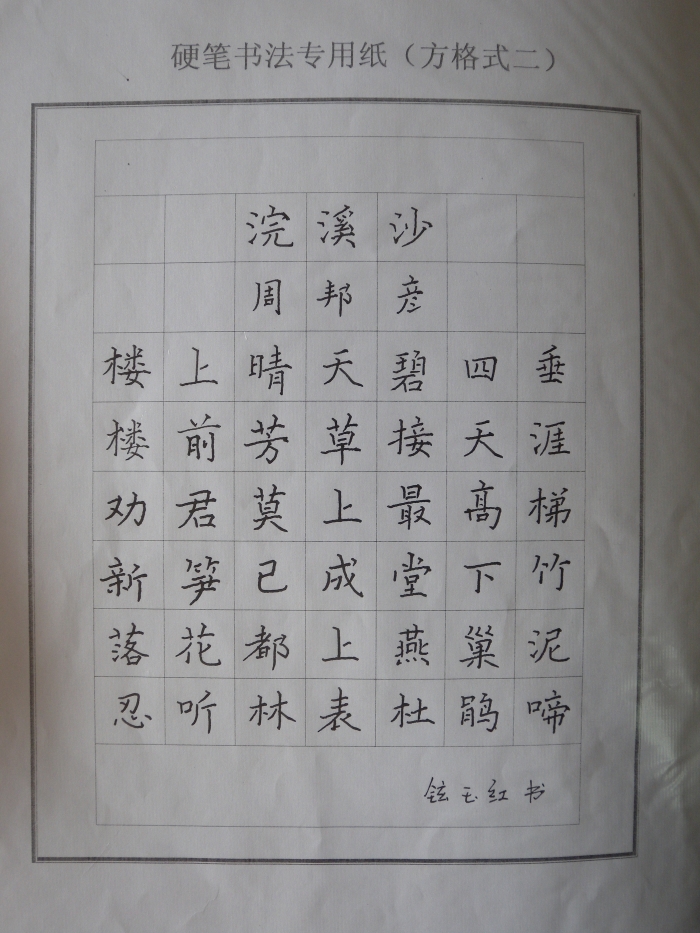 硬笔书法专用纸（方格式二）
浣溪沙
周邦彦
楼上晴天碧四垂
楼前芳草接天涯
劝君莫上最高梯
新笋已成堂下竹
落花都上燕巢泥
忍听林表杜鹃啼
铉玉红书